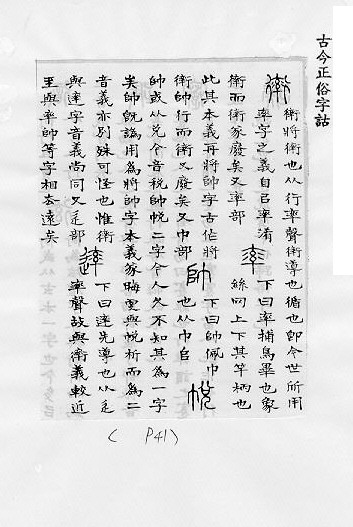 古今正俗字詁
𧗿
𧗿將𧗿也从行率聲𧗿導也循也卽今世所用
率字之義自㠯率淆
𧗿而𧗿篆廢矣又率部
率
下曰率捕鳥畢也象
絲网上下其竿柄也
此其本義再將帥字古作將
𧗿帥行而𧗿又廢矣又巾部
帥
下曰帥佩巾
也从巾𠂤
帨
帥或从兌今音稅帥帨二字今人久不知其為一字
矣帥旣譌用為將帥字本義篆晦更與帨析而為二
音義亦別殊可怪也惟𧗿
與䢦字音義尚同又辵部
䢦
下曰䢦先導也从辵
率聲故與𧗿義較近
至與率帥等字相去遠矣
( P41)